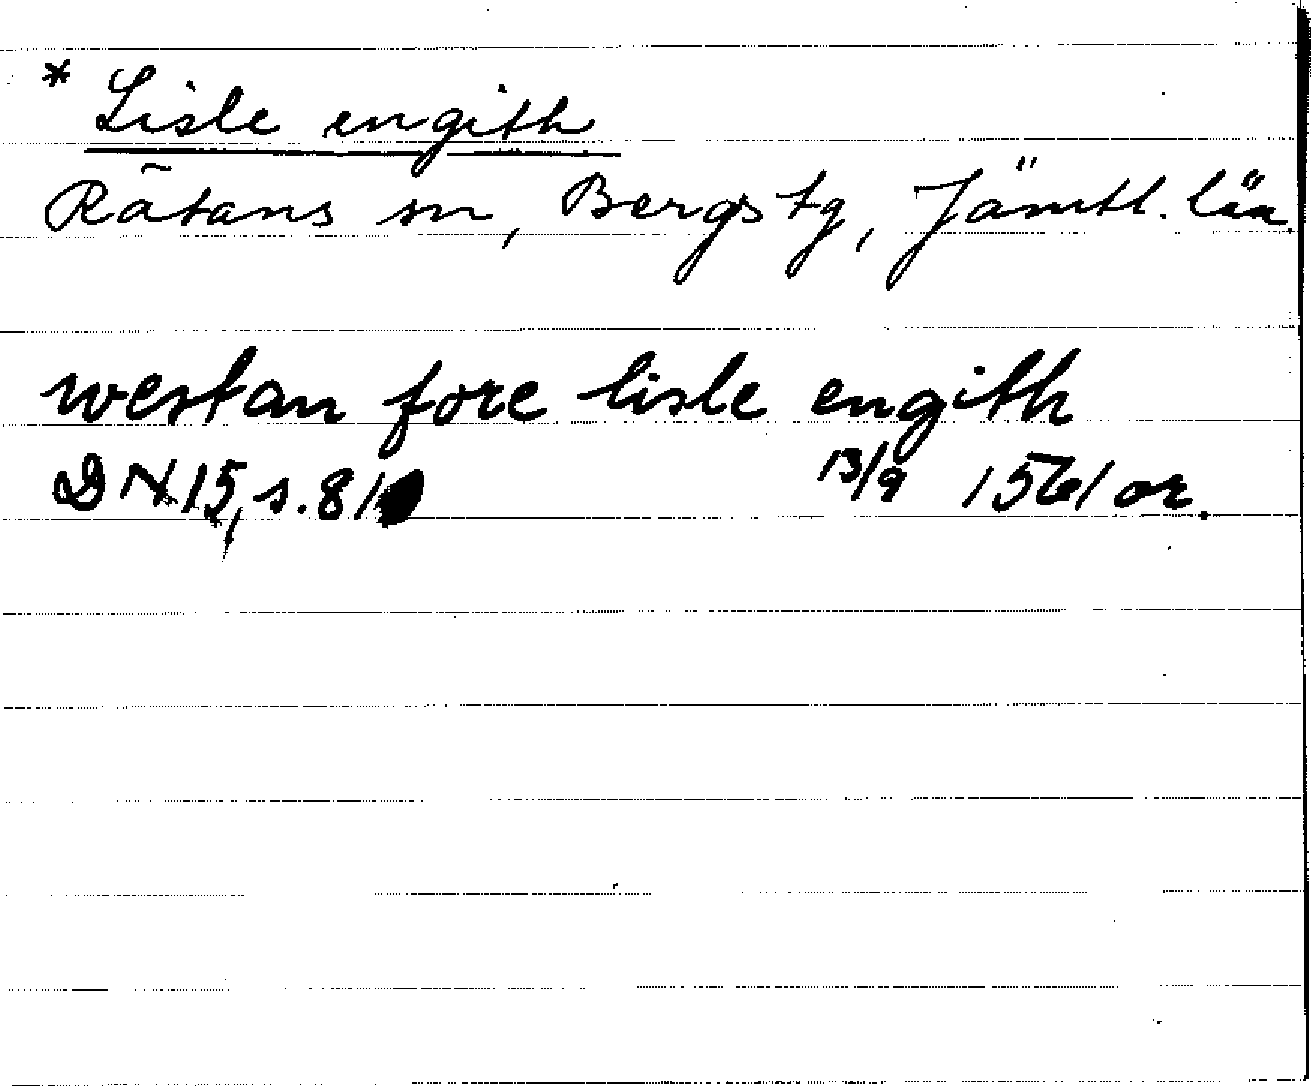 * Lisle engith
Rätans sn, Bergs tg, Jämtl. län.
westan fore lisle engith
DN 15, s. 81 13/9 1561 or.